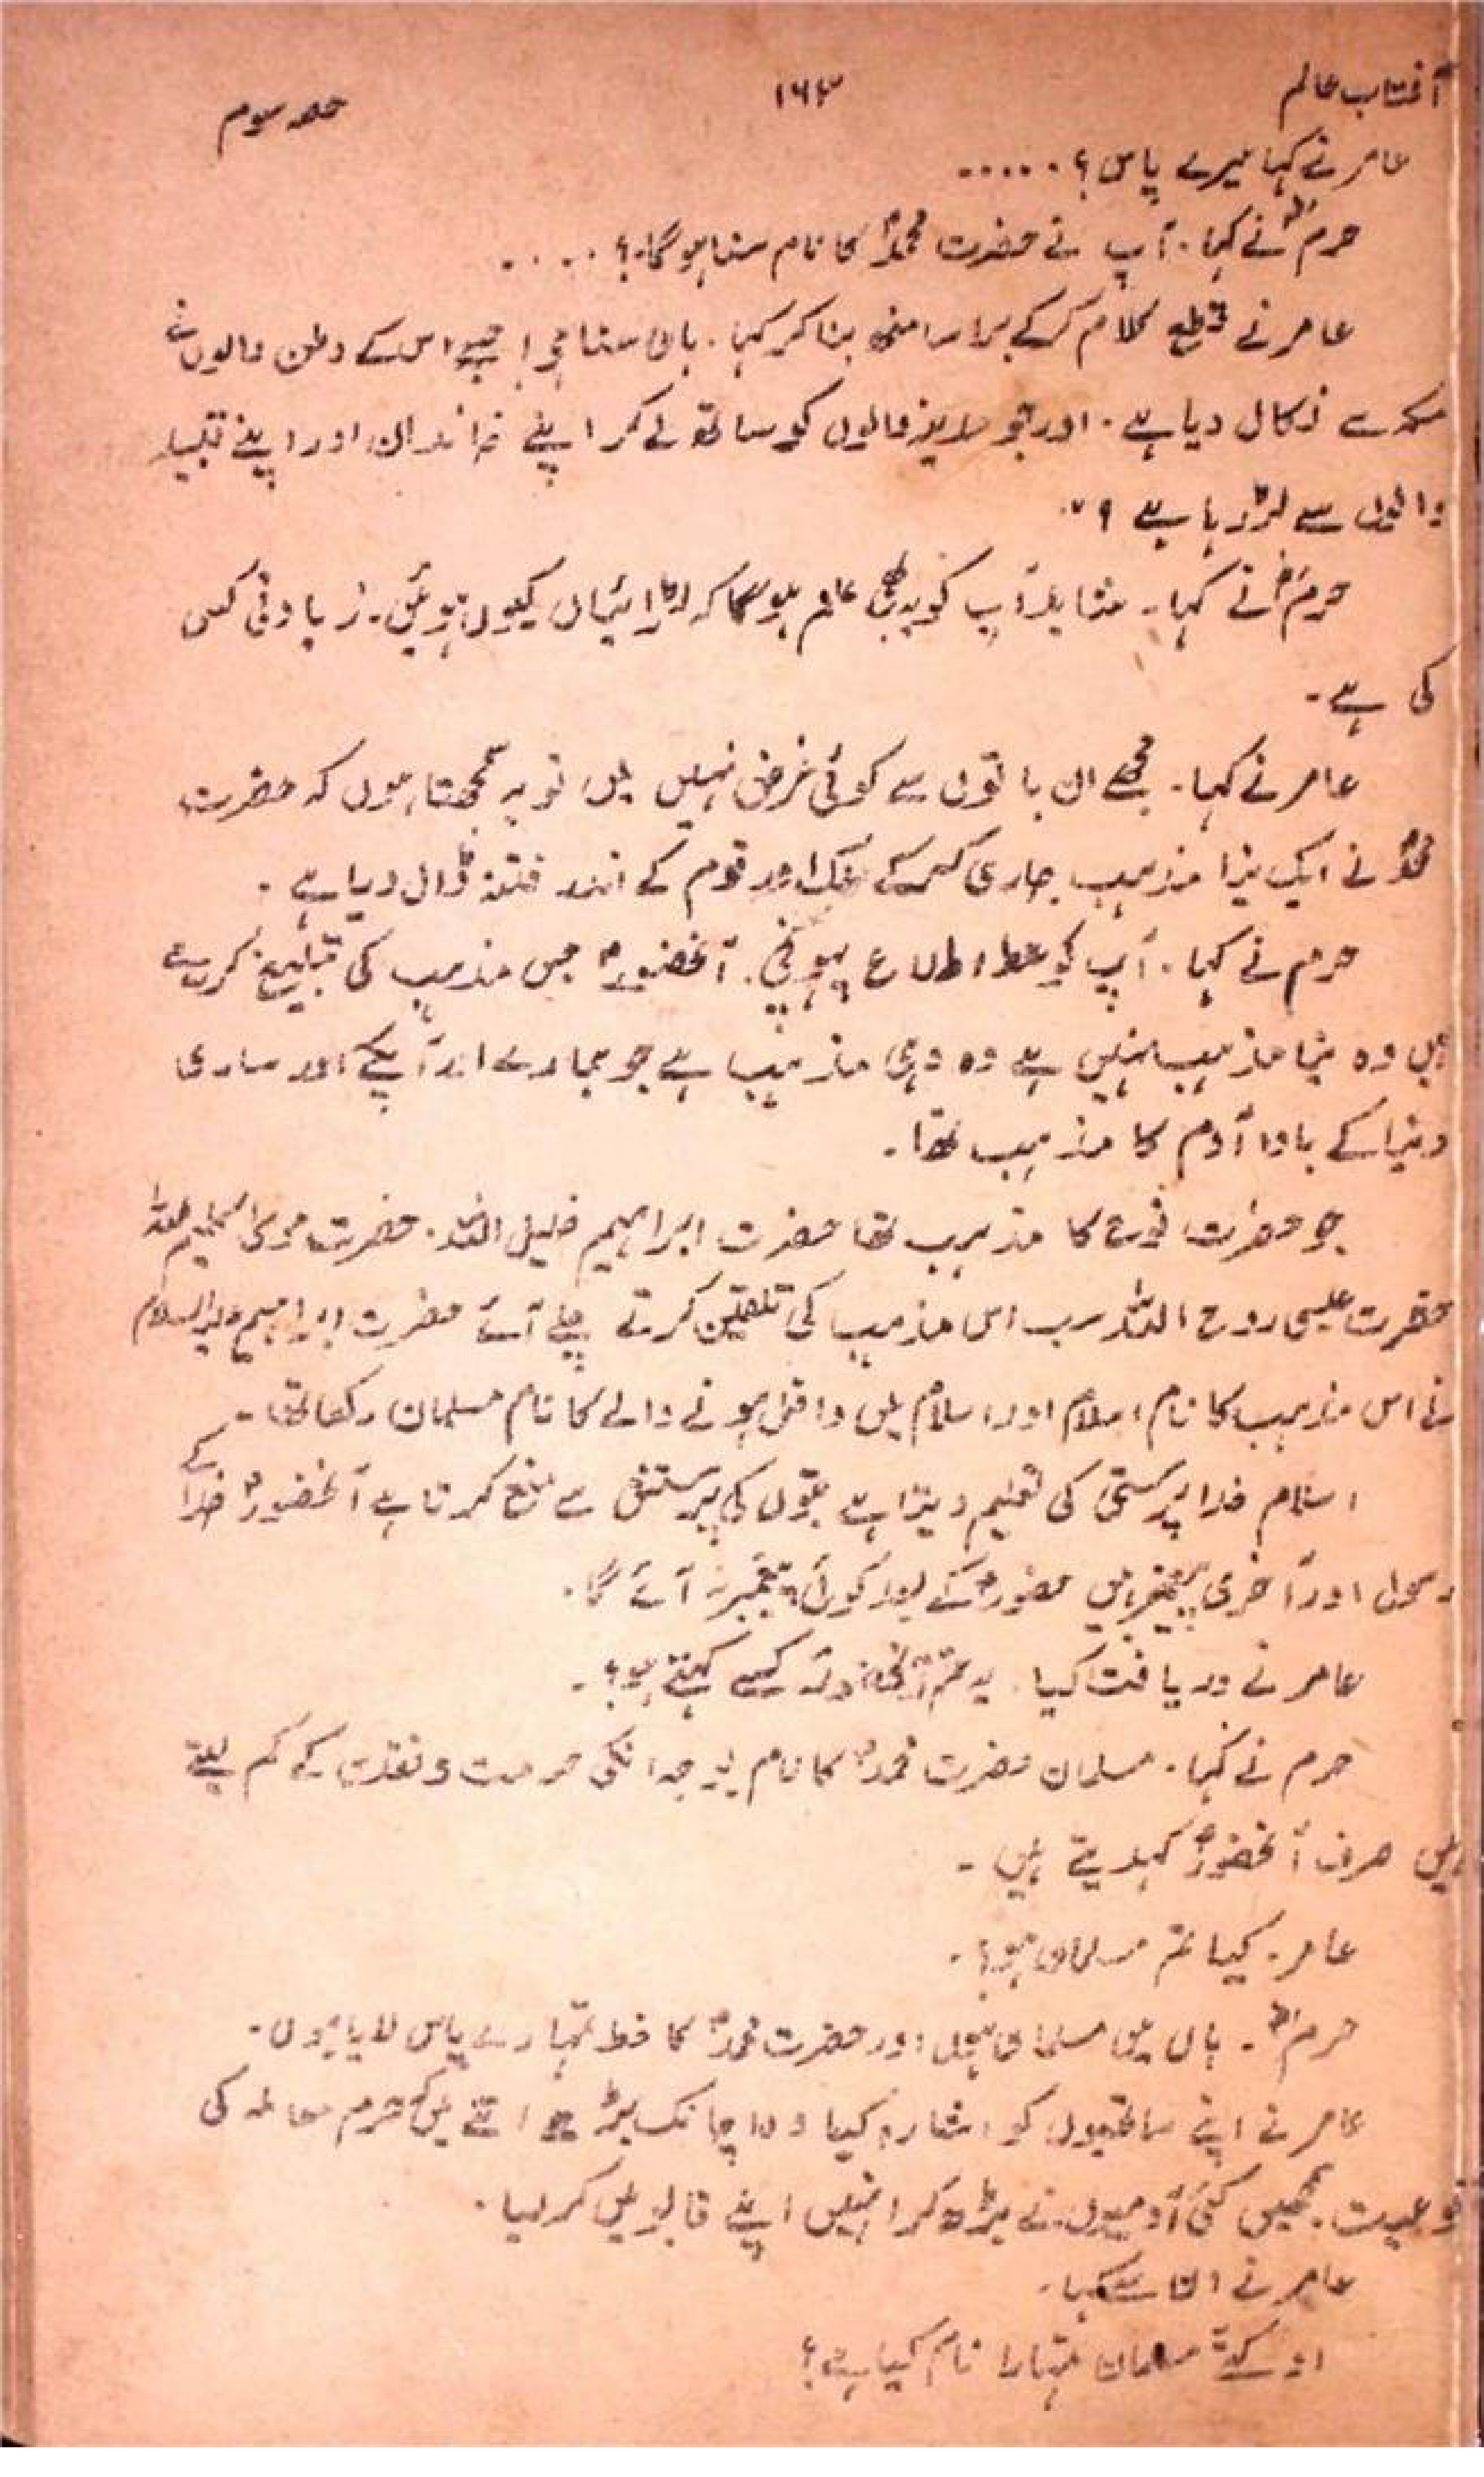 آفتاب عالم ۱۶۳ حصہ سوم
عامر نے کہا میرے پاس؟ .....
حرمؓ نے کہا۔ آپ نے حضرت محمدؐ کا نام سنا ہو گا۔؟ ....
عامر نے قطع کلام کر کے برا سا منھ بنا کر کہا۔ ہاں سنا ہے! جسے اس کے وطن والوں نے
مکہ سے نکال دیا ہے۔ اور جو مدینہ والوں کو ساتھ لے کر اپنے خاندان اور اپنے قبیلہ
والوں سے لڑ رہا ہے؟"
حرمؓ نے کہا۔ شاید آپ کو یہ بھی علم ہو گا کہ لڑائیاں کیوں ہوئیں۔ زیادتی کس
کی ہے۔
عامر نے کہا۔ مجھے ان باتوں سے کوئی غرض نہیں میں تو یہ سمجھتا ہوں کہ حضرت
محمدؐ نے ایک نیا مذہب جاری کر کے ملک اور قوم کے اندر فتنہ ڈال دیا ہے۔
حرم نے کہا۔ آپ کو غلط اطلاع پہونچی۔ آنحضورؐ جس مذہب کی تبلیغ کر رہے
ہیں وہ نیا مذہب نہیں ہے وہ وہی مذہب ہے جو ہمارے اور آپکے اور ساری
دنیا کے باوا آدم کا مذہب تھا۔
جو حضرت نوح کا مذہب تھا حضرت ابراہیم خلیل اللہ۔ حضرت موسیٰ کلیم اللہ
حضرت عیسیٰ روح اللہ سب اس مذہب کی تلقین کرتے چلے آئے حضرت ابراہیم علیہ السلام
نے اس مذہب کا نام اسلام اور اسلام میں داخل ہونے والے کا نام مسلمان رکھا تھا۔
اسلام خدا پرستی کی تعلیم دیتا ہے بتوں کی پرستش سے منع کرتا ہے آنحضورؐ خدا کے
رسول اور آخری پیغمبر ہیں حضورؐ کے بعد کوئی پیغمبر نہ آئے گا۔
عامر نے دریافت کیا۔ یہ تم آنحضورؐ کسے کہتے ہو؟۔
حرم نے کہا۔ مسلمان حضرت محمدؐ کا نام بوجہ انکی حرمت و تقدس کے کم لیتے
ہیں صرف آنحضورؐ کہدیتے ہیں۔
عامر۔ کیا تم مسلمان ہو؟۔
حرمؓ۔ ہاں میں مسلمان ہوں اور حضرت محمدؐ کا خط تمہارے پاس لایا ہوں۔
عامر نے اپنے ساتھیوں کو اشارہ کیا وہ اچانک بڑھے اتنے میں کہ حرم معاملہ کی
نوعیت سمجھیں کئی آدمیوں نے بڑھ کر انہیں اپنے قابو میں کر لیا۔
عامر نے ان سے کہا۔
او مسلمان تمہارا نام کیا ہے؟